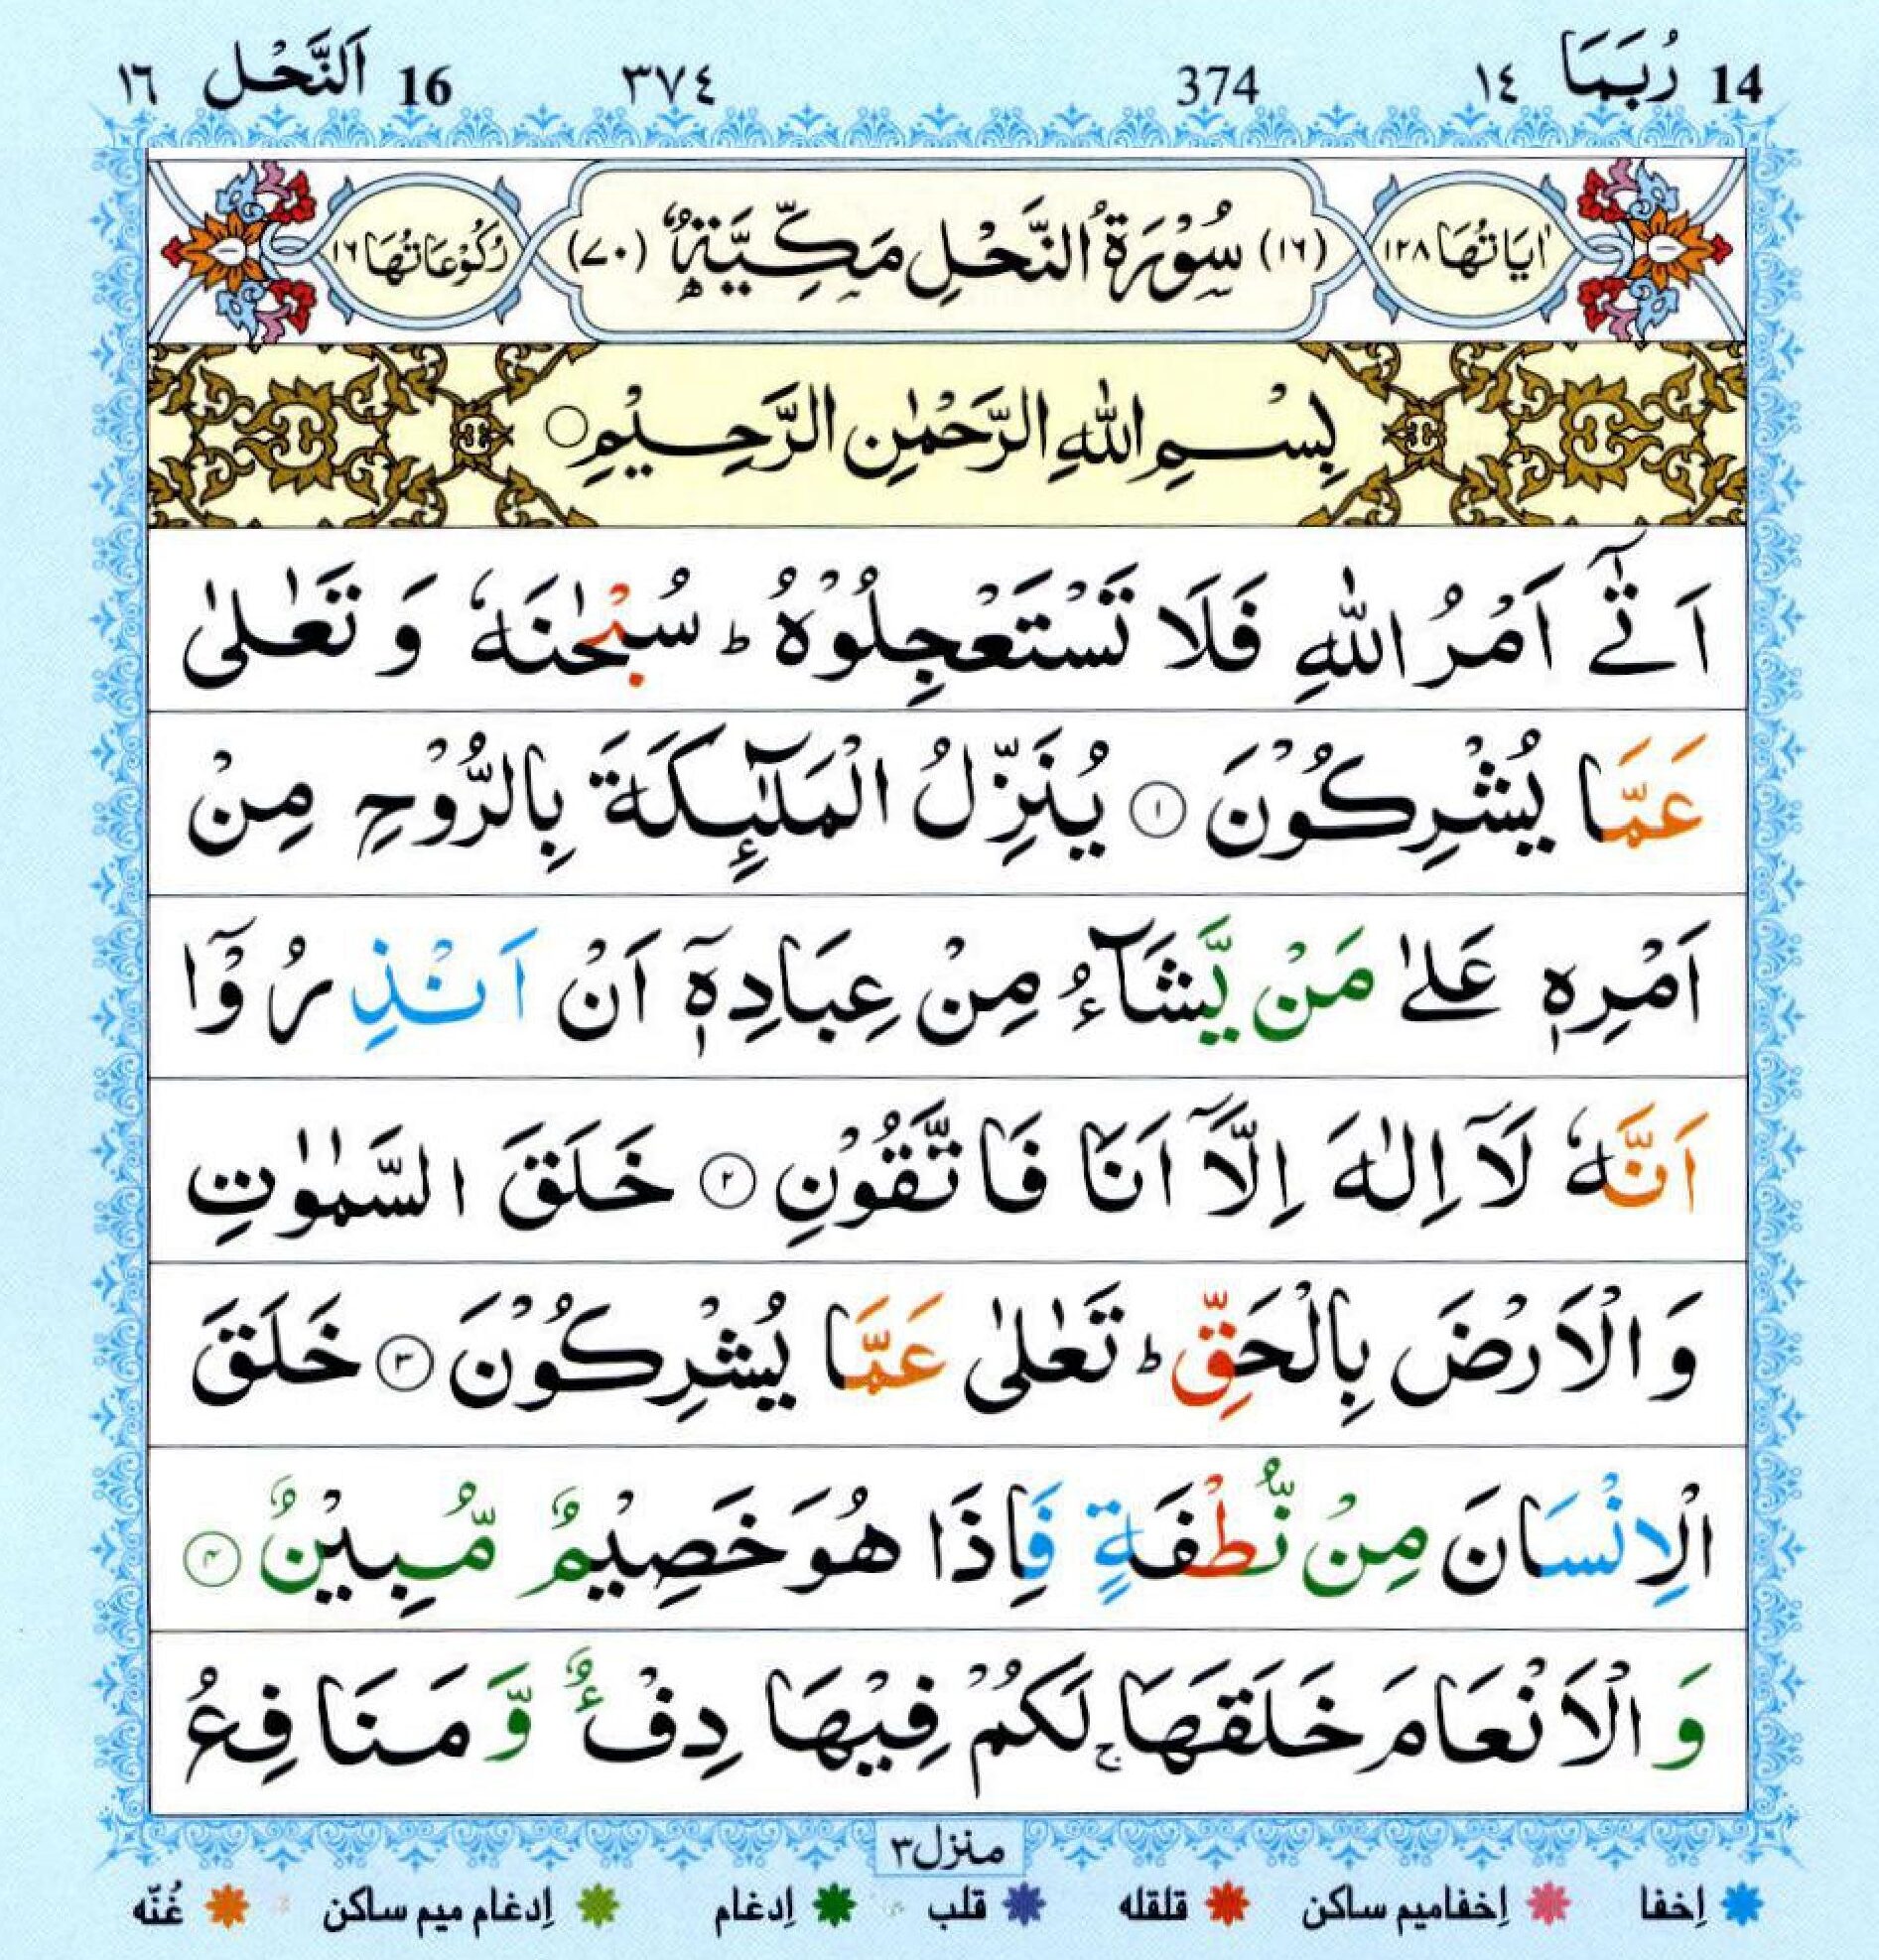 14 رُبَمَا ١٤ 374 ٣٧٤ 16 اَلنَّحْل ١٦
اٰيَاتُهَا ١٢٨ (١٦) سُوْرَةُ النَّحْلِ مَكِّيَّةٌ (٧٠) رُكُوْعَاتُهَا ١٦
بِسْمِ اللّٰهِ الرَّحْمٰنِ الرَّحِيْمِ ○
اَتٰۤى اَمْرُ اللّٰهِ فَلَا تَسْتَعْجِلُوْهُ ؕ سُبْحٰنَهٗ وَ تَعٰلٰى
عَمَّا يُشْرِكُوْنَ ۝١ يُنَزِّلُ الْمَلٰٓىِٕكَةَ بِالرُّوْحِ مِنْ
اَمْرِهٖ عَلٰى مَنْ يَّشَآءُ مِنْ عِبَادِهٖۤ اَنْ اَنْذِرُوْۤا
اَنَّهٗ لَاۤ اِلٰهَ اِلَّاۤ اَنَا فَاتَّقُوْنِ ۝٢ خَلَقَ السَّمٰوٰتِ
وَ الْاَرْضَ بِالْحَقِّ ؕ تَعٰلٰى عَمَّا يُشْرِكُوْنَ ۝٣ خَلَقَ
الْاِنْسَانَ مِنْ نُّطْفَةٍ فَاِذَا هُوَ خَصِيْمٌ مُّبِيْنٌ ۝٤
وَ الْاَنْعَامَ خَلَقَهَا ۚ لَكُمْ فِيْهَا دِفْءٌ وَّ مَنَافِعُ
منزل ٣
اِخفا اِخفا ميم ساكن قلقله قلب اِدغام اِدغام ميم ساكن غُنّه